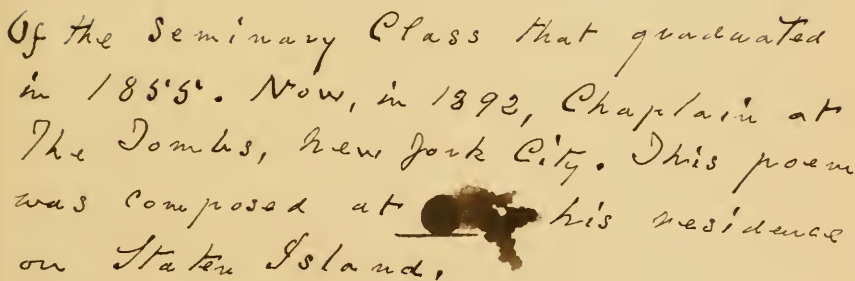 Of the Seminary Class that graduated
in 1855. Now, in 1892, Chaplain at
The Tombs, New York City. This poem
was composed at his residence
on Staten Island.